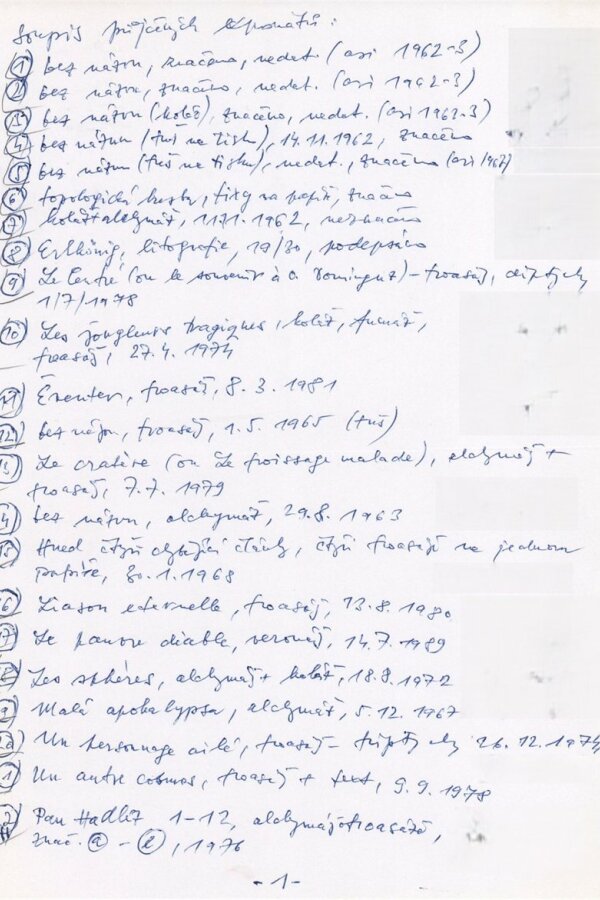 Soupis půjčených exponátů:
1) bez názvu, značeno, nedat. (asi 1962-3)
2) bez názvu, značeno, nedat. (asi 1962-3)
3) bez názvu (koláž), značeno, nedat. (asi 1962-3)
4) bez názvu (tuš na tisku), 14.11.1962, značeno
5) bez názvu (tuš na tisku), nedat., značeno (asi 1967)
6) topologická kresba, fixy na papíř, značeno
7) koláž+alchymáž, 1962, neznačeno
8) Erlkönig, litografie, 19/30, podepsáno
9) Le Centré (ou le souvenir à O. Dominguez) - froasáž, diptych
1/7/1978
10) Les jongleurs tragiques, koláž, fumáž,
froasáž, 27.4. 1974
11) Éventer, froasáž, 8.3. 1981
12) bez názvu, froasáž, 1.5. 1965 (tuš)
13) Le cratère (ou Le froissage malade), alchymáž +
froasáž, 7.7. 1979
14) bez názvu, alchymáž, 29.8. 1963
15) Hned čtyři chybějící články, čtyři froasáže na jednom
papíře, 30.1.1968
16) Liason eternelle, froasáž, 13.8. 1980
17) Le pauvre diable, 14.7. 1989
18) Les sphères, alchymáž + koláž, 18.8.1972
19) Malá apokalypsa, alchymáž, 5.12. 1967
20) Un personnage ailé, froasáž - triptych, 26.12.1974
21) Un autre cosmos, froasáž + text, 9.9. 1978
22) Pan Hadlíz 1-12, alchymáž+froasáže,
znač. a - l, 1976
-1-